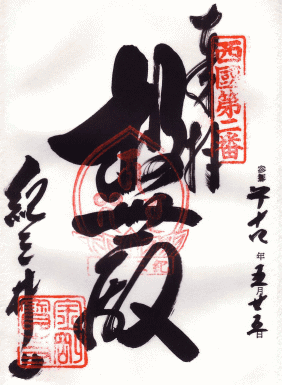 奉拝
西國第二番
救世殿
紀三井寺
参拝 平十八年五月廿五日